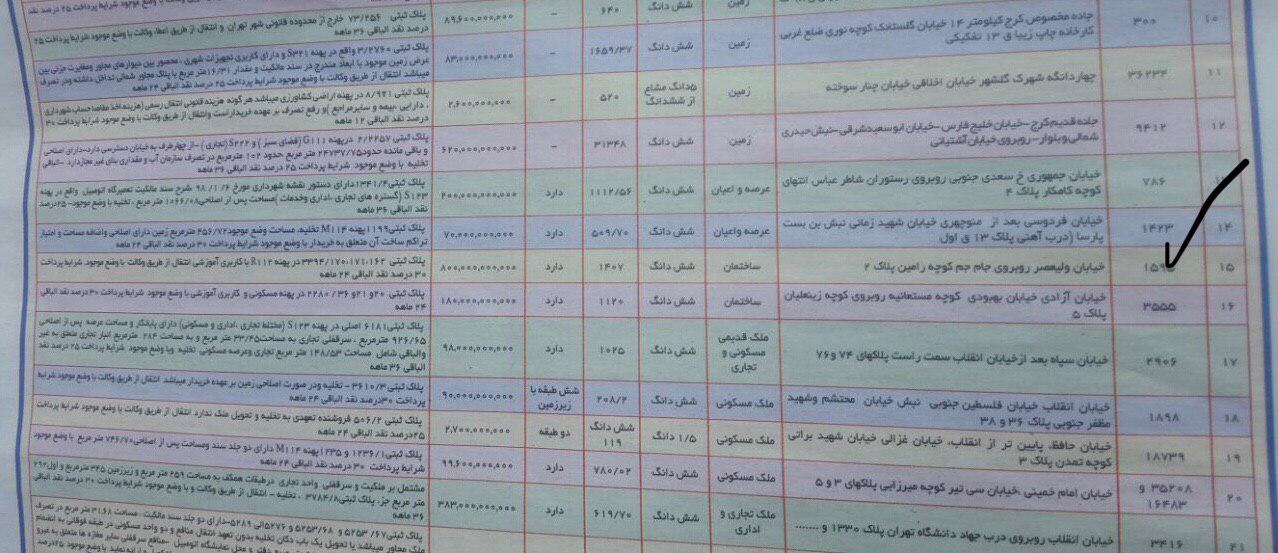 ۱۰ ۳۰۰ جاده مخصوص کرج کیلومتر ۱۴ خیابان گلستانک کوچه نوری ضلع غربی
کارخانه چاپ زیبا ق ۱۳ تفکیکی
زمین شش دانگ ۶۴۰ - ۸۹,۶۰۰,۰۰۰,۰۰۰
پلاک ثبتی ۷۳/۲۵۶ خارج از محدوده قانونی شهر تهران و انتقال از طریق اعطا وکالت با وضع موجود شرایط پرداخت ۲۵
درصد نقد الباقی ۳۶ ماهه
زمین شش دانگ ۱۶۵۹/۳۷ - ۸۳,۰۰۰,۰۰۰,۰۰۰
پلاک ثبتی ۳/۲۷۶۰ واقع در پهنه S۳۲۱ و دارای کاربری تجهیزات شهری ، محصور بین دیوارهای مجاور ومغایرت جزئی بین
عرض زمین موجود با ابعاد مندرج در سند مالکیت و مقدار ۱۶/۳۱متر مربع با پلاک مجاور شمالی تداخل داشته ودر تصرف
میباشد انتقال از طریق وکالت با وضع موجود شرایط پرداخت ۲۵ درصد نقد الباقی ۲۴ ماهه
۱۱ ۳۶۲۳۴ چهاردانگه شهرک گلشهر خیابان اخلاقی خیابان چنار سوخته
زمین ۵دانگ مشاع
از ششدانگ
۵۲۰ - ۲,۶۰۰,۰۰۰,۰۰۰
پلاک ثبتی ۸/۹۲۱ در پهنه اراضی کشاورزی میباشد هرگونه هزینه قانونی انتقال رسمی (هزینه اخذ مفاصا حساب شهرداری
، دارایی ،بیمه و سایرمراجع )و رفع تصرف بر عهده خریداراست وانتقال از طریق وکالت با وضع موجود شرایط پرداخت ۳۰
درصد نقد الباقی ۱۲ ماهه
۱۲ ۹۴۱۲ جاده قدیم کرج-خیابان خلیج فارس-خیابان ابوسعیدشرقی-نبش حیدری
شمالی وبلوار - روبروی خیابان آشتیانی
زمین شش دانگ ۳۱۳۴۸ - ۶۲۰,۰۰۰,۰۰۰,۰۰۰
پلاک ثبتی ۲/۲۲۵۷ درپهنه G۱۱۱ (فضای سبز ) و S۲۲۲ (تجاری ) -از چهارطرف به خیابان دسترسی دارد-دارای اصلاحی
و باقی مانده حدود۲۴۷۳۷/۷۵ متر مربع حدود ۱۰۲ مترمربع در تصرف سازمان آب و مقداری بنای غیر مجازدارد -الباقی
تخلیه با وضع موجود شرایط پرداخت ۲۵ درصد نقد الباقی ۳۶ ماهه
۷۸۶ خیابان جمهوری خ سعدی جنوبی روبروی رستوران شاطر عباس انتهای
کوچه کامکار پلاک ۴
عرصه و اعیان شش دانگ ۱۱۱۲/۵۶ دارد ۲۰۰,۰۰۰,۰۰۰,۰۰۰
پلاک ثبتی۱۳۴۱/۴دارای دستور نقشه شهرداری مورخ ۹۸/۱/۶ شرح سند مالکیت تعمیرگاه اتومبیل واقع در پهنه
S۱۲۳ (گستره های تجاری ،اداری وخدمات )مساحت پس از اصلاحی۱۰۶۶/۰۸ متر مربع ، تخلیه با وضع موجود-۲۵درصد
نقد الباقی ۳۶ ماهه
۱۴ ۱۴۲۳ خیابان فردوسی بعد از منوچهری خیابان شهید زمانی نبش بن بست
پارسا (درب آهنی پلاک ۱۳ ق اول
عرصه واعیان شش دانگ ۵۰۹/۷۰ دارد ۷۰,۰۰۰,۰۰۰,۰۰۰
پلاک ثبتی۱۱۹۹پهنه M۱۱۴ تخلیه، مساحت وضع موجود۴۵۶/۷۲ مترمربع زمین دارای اصلاحی واضافه مساحت و امتیاز
تراکم ساخت آن متعلق به خریدار با وضع موجود شرایط پرداخت ۳۰ درصد نقد الباقی ۲۴ ماهه
۱۵ خیابان ولیعصر روبروی جام جم کوچه رامین پلاک ۲
ساختمان شش دانگ ۱۴۰۷ دارد ۸۰۰,۰۰۰,۰۰۰,۰۰۰
پلاک ثبتی ۳۳۹۴/۱۷۰،۱۷۱،۱۶۲ در پهنه R۱۱۲ با کاربری آموزشی انتقال از طریق وکالت با وضع موجود شرایط پرداخت
۳۰ درصد نقد الباقی ۲۴ ماهه
۱۶ ۳۵۵۵ خیابان آزادی خیابان بهبودی کوچه مستعانیه روبروی کوچه زینعلیان
پلاک ۵
ساختمان شش دانگ ۱۱۲۰ دارد ۱۸۰,۰۰۰,۰۰۰,۰۰۰
پلاک ثبتی ۲۰و۲۱و ۳۶ / ۲۲۸۰ در پهنه مسکونی و کاربری آموزشی با وضع موجود شرایط پرداخت ۳۰درصد نقد الباقی
۲۴ ماهه
۱۷ ۲۹۰۶ خیابان سپاه بعد ازخیابان انقلاب سمت راست پلاکهای ۷۴ و۷۶
ملک قدیمی
مسکونی و
تجاری
شش دانگ ۱۰۲۵ دارد ۹۸,۰۰۰,۰۰۰,۰۰۰
پلاک ثبتی۶۱۸۱ اصلی در پهنه S۱۲۳ (مختلط تجاری ،اداری و مسکونی) دارای پایانکار و مساحت عرصه پس از اصلاحی
۹۲۶/۶۵ مترمربع ، سرقفلی تجاری به مساحت۳۳/۴۵ متر مربع و به مساحت ۲۸۴ مترمربع انبار تجاری متعلق به غیر
والباقی شامل مساحت ۱۴۸/۵۳ متر مربع تجاری وعرصه مسکونی تخلیه وبا وضع موجود شرایط پرداخت ۲۵ درصد نقد
الباقی ۳۶ ماهه
۱۸ ۱۸۹۸ خیابان انقلاب خیابان فلسطین جنوبی نبش خیابان محتشم وشهید
مظفر جنوبی پلاک ۳۶ و ۳۸
ملک مسکونی شش دانگ ۲۰۸/۲ شش طبقه با
زیرزمین
۹۰,۰۰۰,۰۰۰,۰۰۰
پلاک ثبتی ۳۶۱۰/۳ - تخلیه ودر صورت اصلاحی زمین بر عهده خریدار میباشد انتقال از طریق وکالت با وضع موجود شرایط
پرداخت ۳۰درصد نقد الباقی ۲۴ ماهه
۱۹ ۱۸۷۳۹ خیابان حافظ، پایین تر از انقلاب، خیابان غزالی خیابان شهید براتی
کوچه تمدن پلاک ۳
ملک مسکونی ۱/۵ دانگ شش دانگ
۱۱۹
دو طبقه ۲,۷۰۰,۰۰۰,۰۰۰
پلاک ثبتی ۵۰۶/۲ فروشنده تعهدی به تخلیه و تحویل ملک ندارد انتقال از طریق وکالت با وضع موجود شرایط پرداخت
۲۵درصد نقد الباقی ۲۴ ماهه
۲۰ ۳۵۲۰۸ و
۱۶۴۸۳
خیابان امام خمینی ،خیابان سی تیر کوچه میرزایی پلاکهای ۳ و ۵
ملک مسکونی شش دانگ ۷۸۰/۰۲ دارد ۹۹,۶۰۰,۰۰۰,۰۰۰
پلاک ثبتی ۱۲۳۶/۱ و ۱۲۳۵پهنه M۱۱۴ دارای دو جلد سند ومساحت پس از اصلاحی۷۴۶/۷۰ متر مربع با وضع موجود
شرایط پرداخت ۳۰ درصد نقد الباقی ۲۴ ماهه
۲۱ ۳۴۱۶ خیابان انقلاب روبروی درب جهاد دانشگاه تهران پلاک ۱۳۳۰ و .......
ملک تجاری و
اداری
شش دانگ ۶۱۹/۷۰ دارد ۳۸۳,۰۰۰,۰۰۰,۰۰۰
مشتمل بر ملکیت و سرقفلی واحد تجاری درطبقات همکف به مساحت ۲۵۹ متر مربع و زیرزمین ۳۴۵ مترمربع و اول۲۹۲
متر مربع جز، پلاک ثبتی۳۷۸۴/۸ ، تخلیه - انتقال از طریق وکالت و با وضع موجود شرایط پرداخت ۳۰ درصد نقد الباقی
۳۶ ماهه